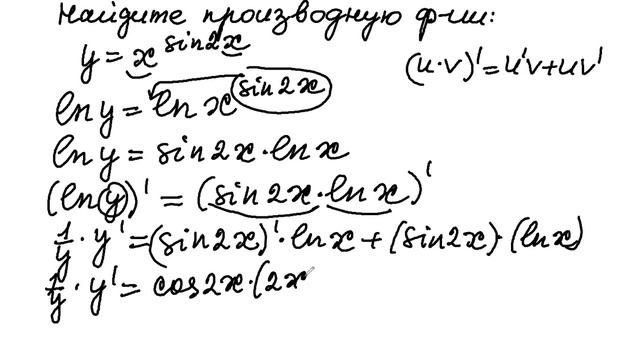 Найдите производную ф-ии:
y = x^sin2x
(u·v)' = u'v+uv'
ln y = ln x^sin2x
ln y = sin2x·ln x
(ln y)' = (sin2x·ln x)'
1/y · y' = (sin2x)'·ln x + (sin2x)·(ln x)
1/y · y' = cos2x·(2x